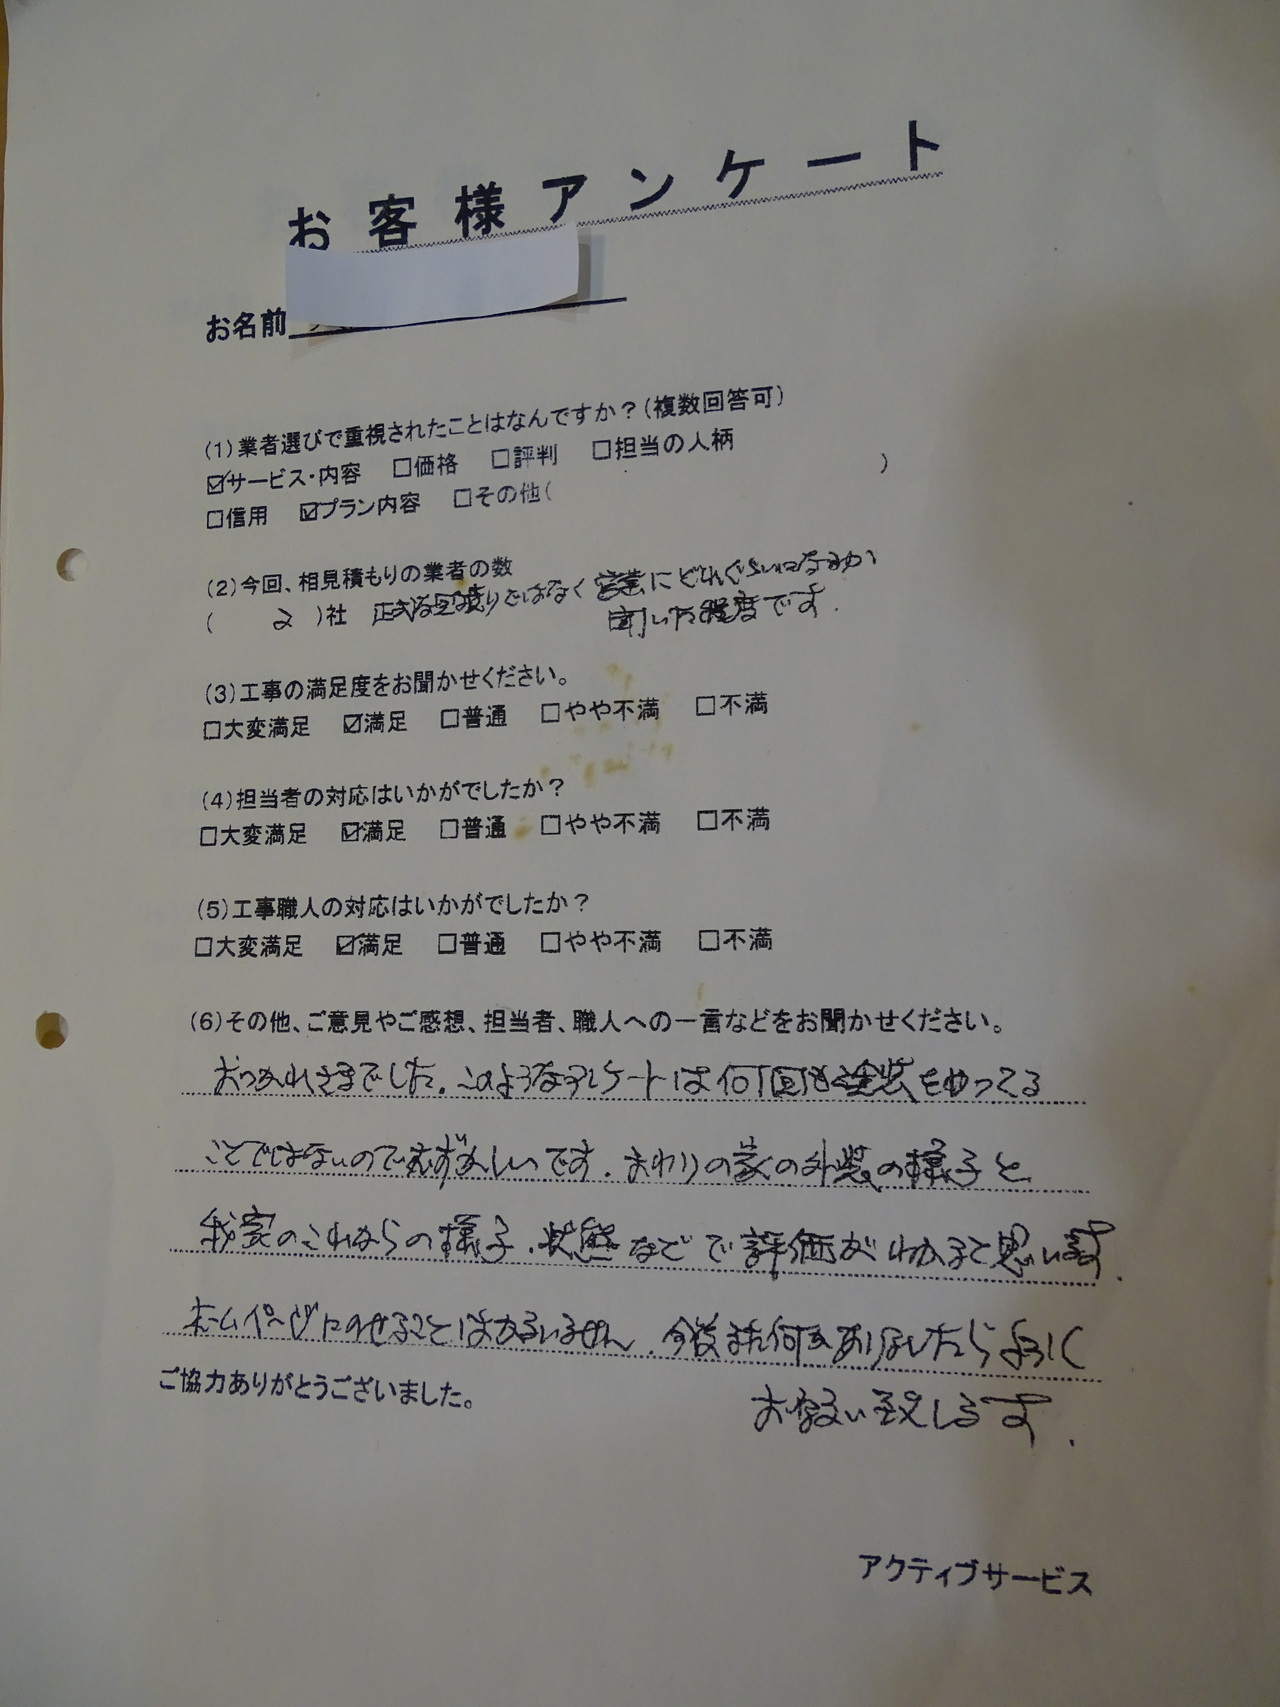 お客様アンケート
お名前
(1)業者選びで重視されたことはなんですか？(複数回答可)
☑サービス・内容 □価格 □評判 □担当の人柄
□信用 ☑プラン内容 □その他( )
(2)今回、相見積もりの業者の数
( 2 )社 正式な見積りではなく営業にどれぐらいになるか
聞いた程度です.
(3)工事の満足度をお聞かせください。
□大変満足 ☑満足 □普通 □やや不満 □不満
(4)担当者の対応はいかがでしたか？
□大変満足 ☑満足 □普通 □やや不満 □不満
(5)工事職人の対応はいかがでしたか？
□大変満足 ☑満足 □普通 □やや不満 □不満
(6)その他、ご意見やご感想、担当者、職人への一言などをお聞かせください。
おつかれさまでした. このようなアンケートは何回も塗装をやってる
ことではないのでむずかしいです. まわりの家の外装の様子と
我家のこれからの様子. 状態などで評価がわかると思います.
ホームページにのせることはかまいません. 今後また何かありましたらよろしく
ご協力ありがとうございました。
お願い致します.
アクティブサービス